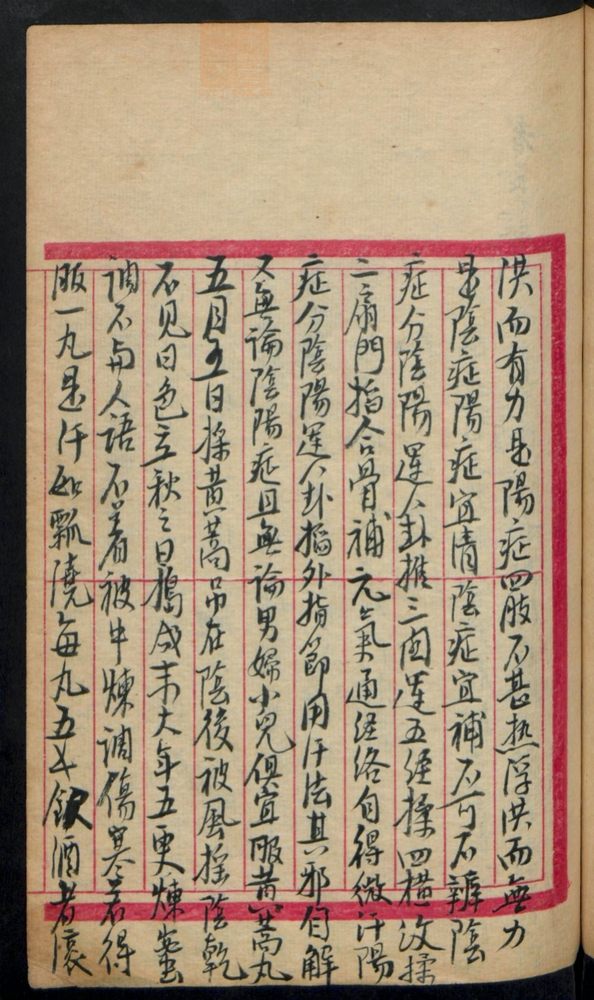 洪而有力是陽症四肢不甚热浮洪而無力
是陰症陽症宜清陰症宜補不可不辨陰
症分陰陽運八卦推三関運五經揉四横汶揉
二扇門掐合骨補元氣通経络自得微汗陽
症分陰陽運八卦掐外指節用汗法其邪自解
又無論陰陽症且無論男婦小兒俱宜服黄蒿丸
五月五日採黄蒿吊在陰後被風揺陰乾
不見日色立秋之日搗成末大年五更煉蜜
調不与人語不着被牛煉調傷寒若得
服一丸是汗如瓢澆每丸五 飲酒者